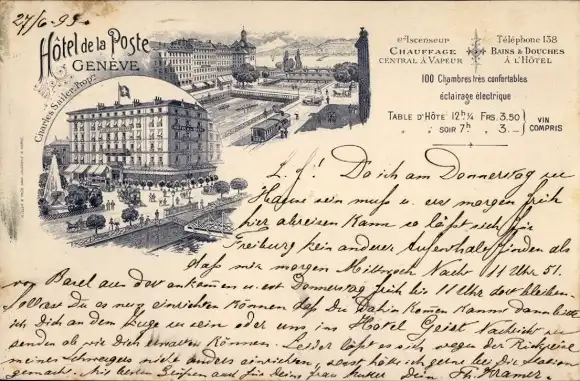 27/6.99.
Hôtel de la Poste
GENÈVE
Charles Sailer, Propr.
Ascenseur
CHAUFFAGE
CENTRAL À VAPEUR
Téléphone 138
BAINS & DOUCHES
À L'HÔTEL
100 Chambres très confortables
éclairage électrique
TABLE D'HÔTE 12h ¼ FRS. 3.50
" SOIR 7h " 3.—
VIN
COMPRIS
L. F! Da ich am Donnerstag zu
Hause sein muss u. erst morgen früh
hier abreisen kann so lässt sich für
Freiburg kein anderer Aufenthalt finden als
dass wir morgen Mittwoch Nacht 11 Uhr 51.
von Basel aus dort ankommen u. erst Donnerstag früh bis 11 Uhr dort bleiben.
Solltest Du es nun einrichten können dass Du dahin kommen kannst dann bitte
ich Dich an dem Zuge zu sein oder uns ins Hotel Geist Nachricht zu
senden ob wir Dich erwarten können. Leider lässt es sich wegen der Rückreise
meiner Schwester nicht anders einrichten, sonst hätte ich gerne hier Station
gemacht. Mit besten Grüssen auch für Deine Frau Mutter Dein Th. Kramer.